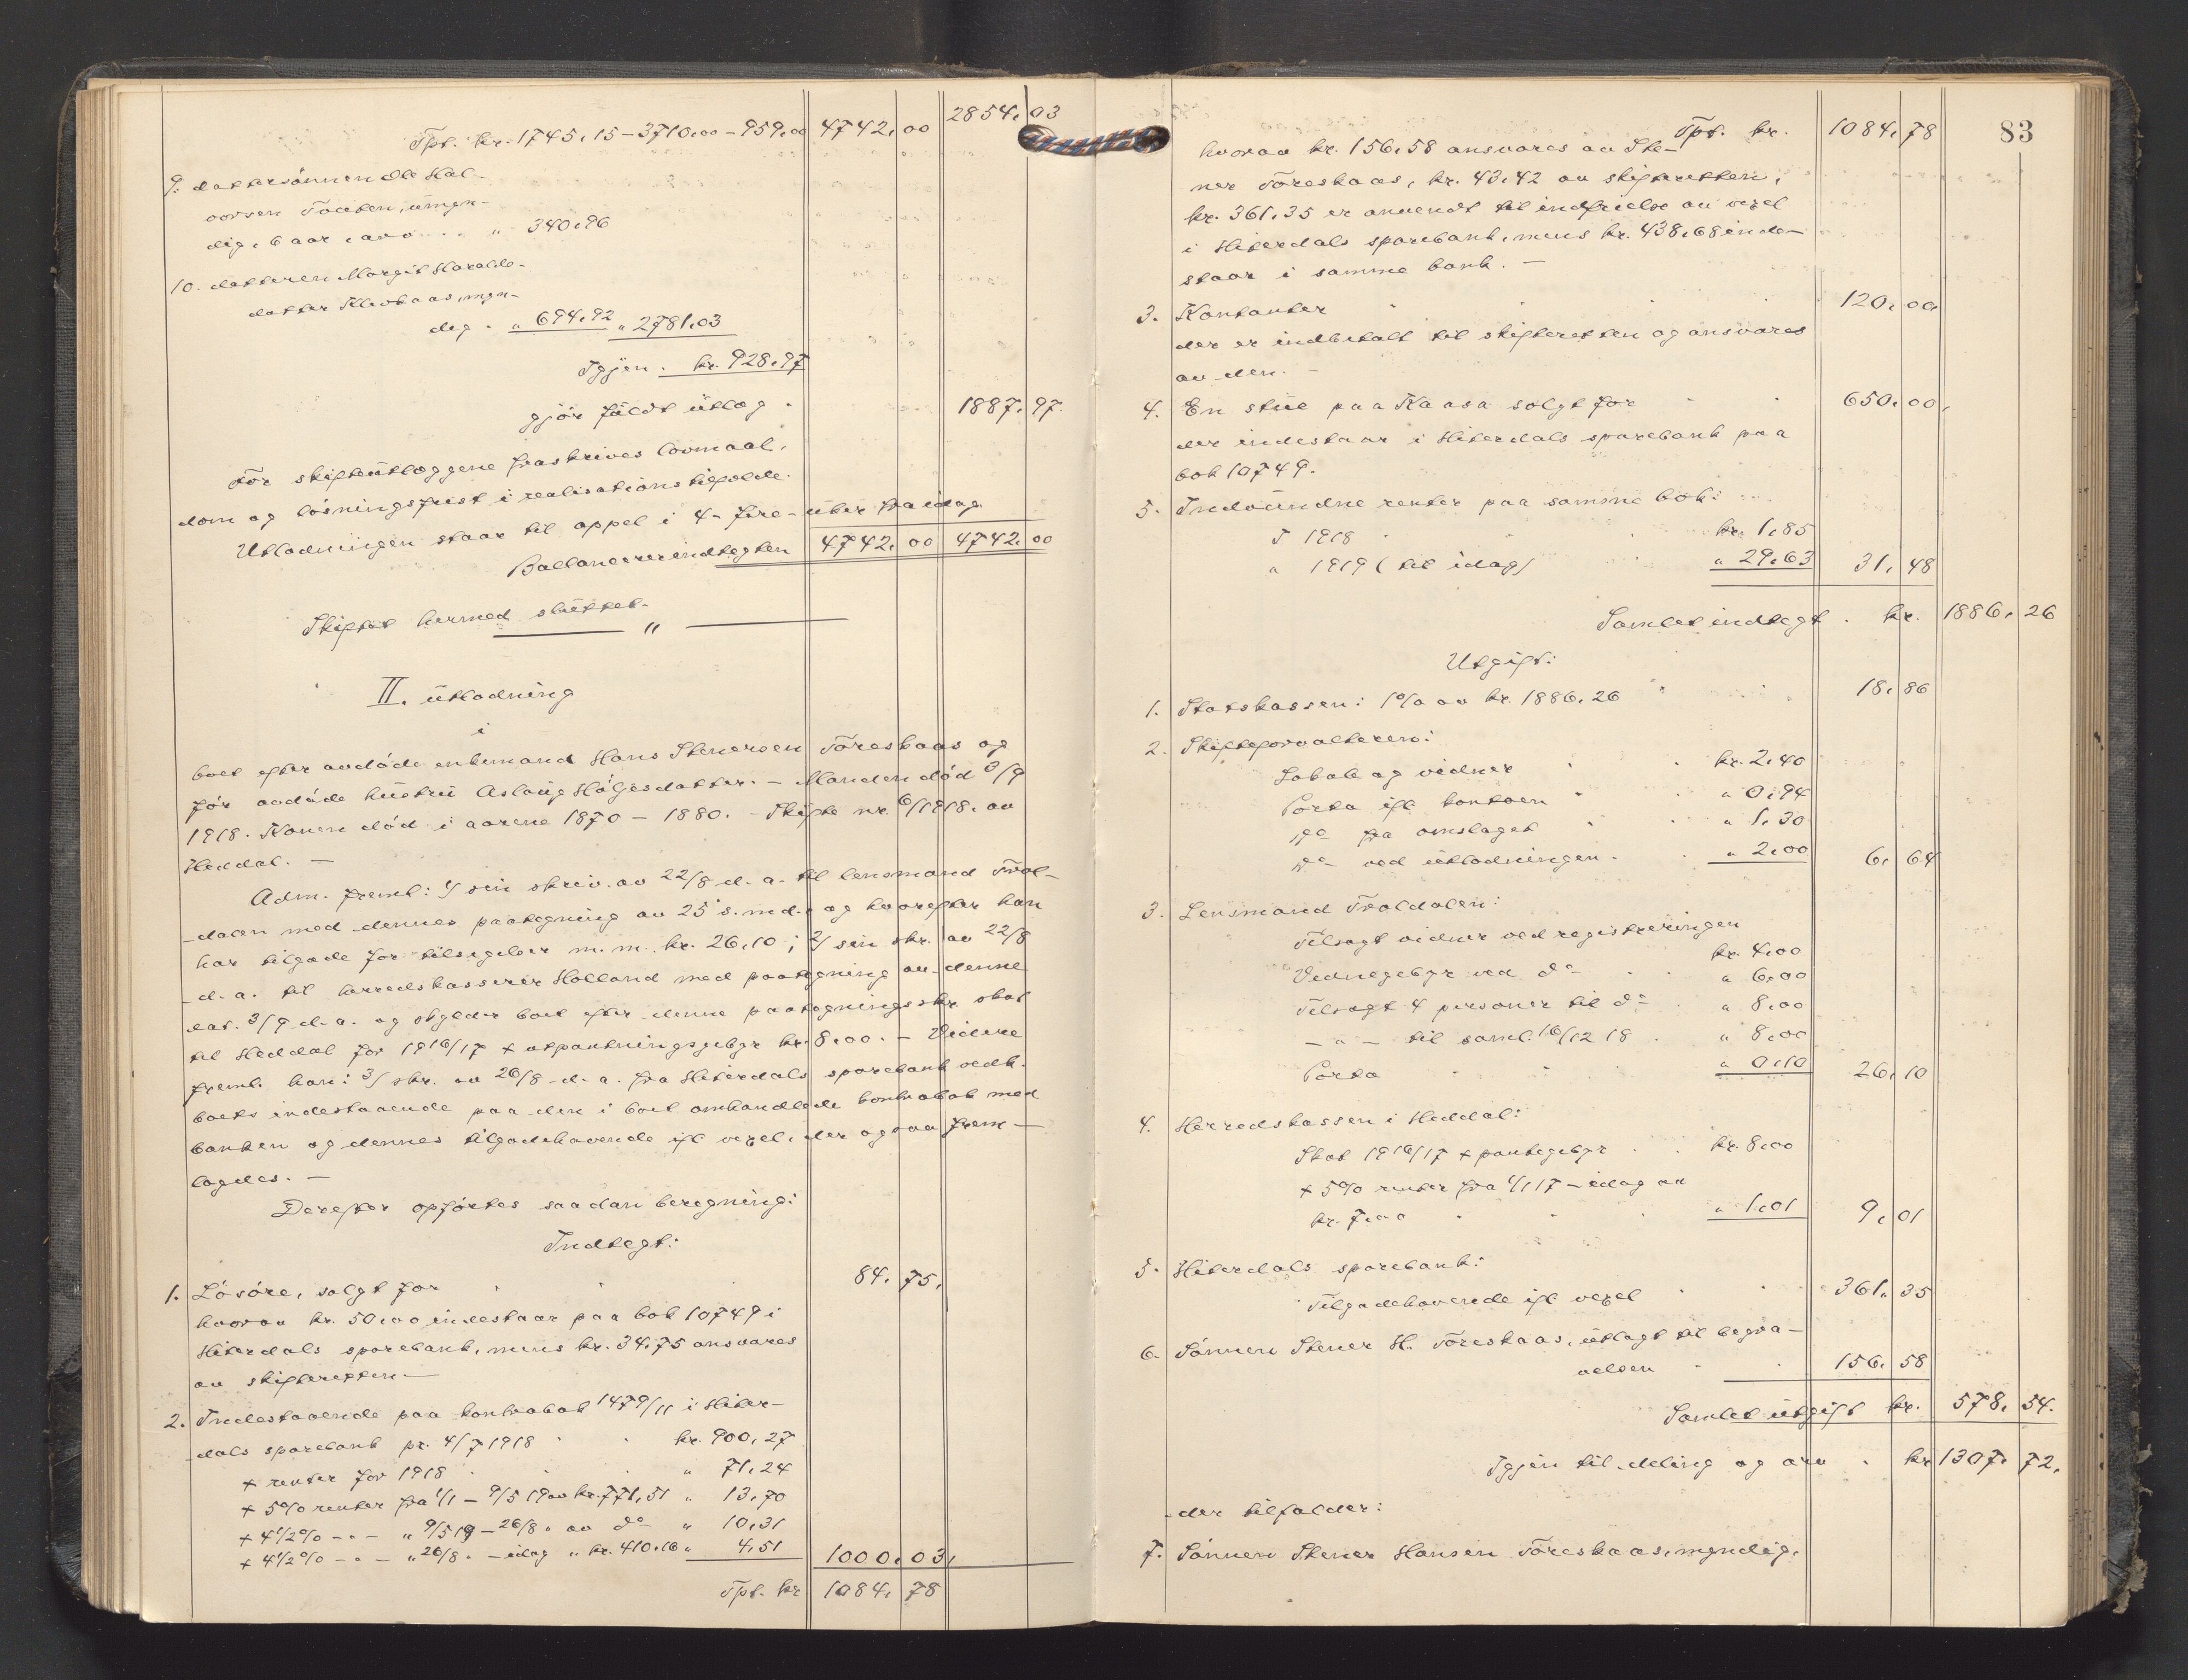 Tpt. kr. 1745,15 - 3710,00 - 959,00 4742,00 2854,03
9. dattersønnen Ole Hal-
vorsen Tveiten, umyn-
dig, 6 aar, arv " 340,96
10. datteren Margit Haralds-
datter Klevkaas, myn-
dig. " 694,92 " 2781,03
Igjen. kr. 928,97
gjør fuldt utlog. 1887,97.
For skifteutloggene fraskrives lovmaal,
dom og løsningsfrist i realisationstilfælde.
Utlodningen staar til appel i 4 - fire - uker fra idag.
Ballancerer indtægten 4742,00 4742,00
Skiftet hermed sluttet.
"
II. utlodning
i
boet efter avdøde enkemand Hans Stenersen Töreskaas og
før avdøde hustru Aslaug Hölgesdatter. - Manden död 3/9
1918. Konen död i aarene 1870 - 1880. - Skifte nr. 6/1918. av
Heddal. -
Adm. freml: 1/ sin skriv. av 22/8 d. a. til lensmand Trol-
dalen med dennes paategning av 25 s. md. og hvorefter han
har tilgode for tilsigelser m. m. kr. 26,10; 2/ sin skr. av 22/8
d. a. til herredskasserer Holland med paategning av denne
dat. 3/9 d. a. og skylder boet efter denne paategningsskr. skat
til Heddal for 1916/17 + utpantningsgebyr kr. 8,00. - Videre
freml. han: 3/ skr. av 26/8 d. a. fra Hiterdals sparebank vedk.
boets indestaaende paa den i boet omhandlede kontrabok med
banken og dennes tilgodehavende ifl. vexel, der ogsaa frem-
lagdes. -
Derefter opførtes saadan beregning:
Indtægt:
1. Løsøre, solgt for 84,75,
hvorav kr. 50,00 indestaar paa bok 10749 i
Hiterdals sparebank, mens kr. 34,75 ansvares
av skifteretten. -
2. Indestaaende paa kontrabok 1479/11 i Hiter-
dals sparebank pr. 4/7 1918 kr. 900,27
+ renter for 1918 " 71,24
+ 5% renter fra 1/1 - 9/5 19 av kr. 771,51 " 13,70
+ 4 1/2% - " - " 9/5 19 - 26/8 " av do " 10,31
+ 4 1/2% - " - " 26/8 " - idag " kr. 410,16 " 4,51 1000,03,
Tpt. kr 1084,78
83
Tpt. kr. 1084,78
hvorav kr. 156,58 ansvares av Ste-
ner Töreskaas, kr. 43,42 av skifteretten,
kr. 361,35 er anvendt til indfrielse av vexel
i Hiterdals sparebank, mens kr. 438,68 inde-
staar i samme bank. -
3. Kontanter 120,00,
der er indbetalt til skifteretten og ansvares
av den. -
4. En stue paa Kaasa solgt for 650,00,
der indestaar i Hiterdals sparebank paa
bok 10749.
5. Indvundne renter paa samme bok:
I 1918 kr. 1,85
" 1919 (til idag) " 29,63 31,48
Samlet indtægt. kr. 1886,26
Utgift:
1. Statskassen: 1% av kr. 1886,26 18,86
2. Skifteforvalteren:
Lokale og vidner kr. 2,40
Porto ifl. kontoen " 0,94
do fra omslaget " 1,30
do ved utlodningen. " 2,00 6,64
3. Lensmand Troldalen:
Tilsagt vidner ved registreringen
kr. 4,00
Vidnegebyr ved do " 6,00
Tilsagt 4 personer til do " 8,00
- " - til saml. 16/12 18 " 8,00
Porto " 0,10 26,10
4. Herredskassen i Heddal:
Skat 1916/17 + pantegebyr kr. 8,00
+ 5% renter fra 1/1 17 - idag av
kr. 7,00 " 1,01 9,01
5. Hiterdals sparebank:
Tilgodehavende ifl. vexel 361,35
6. Sønnen Stener H. Töreskaas, utlagt til begra-
velsen 156,58
Samlet utgift kr. 578,54.
Igjen til deling og arv. kr 1307,72,
der tilfalder:
7. Sønnen Stener Hansen Töreskaas, myndig,